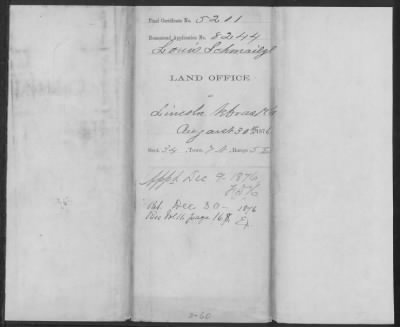 Final Certificate No. 5211
Homestead Application No. 8244
Louis Schmailzl
LAND OFFICE
Lincoln
August 30
Sect. 34, Town. 7 N, Range 5 E
App'd Dec 9 1876
Pat. Dec 30 - 1876
Rec Vol 16 page 168
Ex
2-60